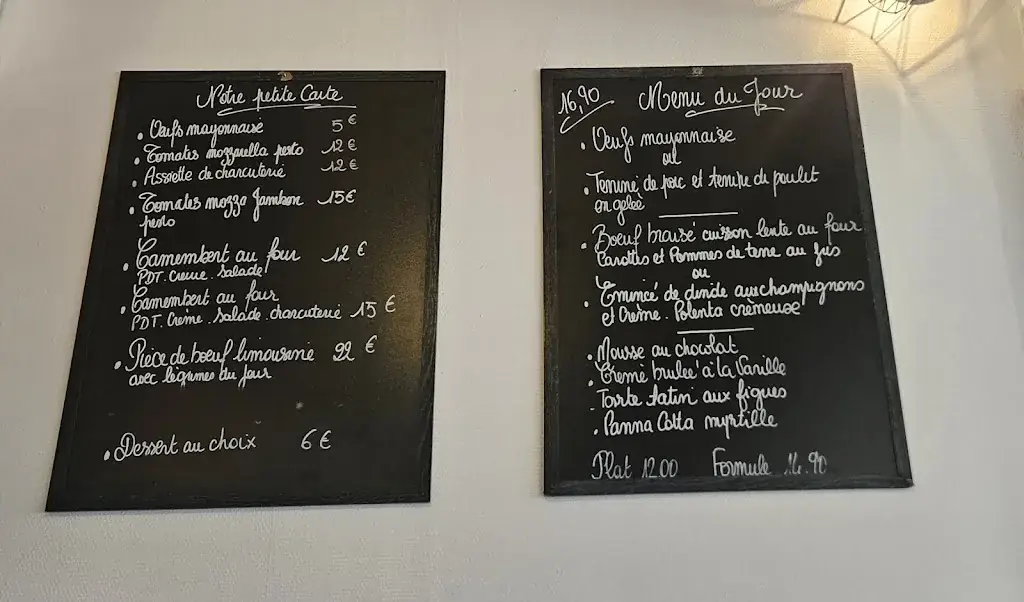 Notre petite Carte
. Oeufs mayonnaise 5€
. Tomates mozzarella pesto 12€
. Assiette de charcuterie 12€
. Tomates mozza Jambon 15€
pesto
. Camembert au four 12€
PDT. Crème. Salade
. Camembert au four
PDT. Crème. Salade. charcuterie 15€
. Pièce de boeuf limousine 22€
avec légumes du jour
. Dessert au choix 6€
16,90 Menu du Jour
. Oeufs mayonnaise
ou
. Terrine de porc et terrine de poulet
en gelée
. Boeuf braisé cuisson lente au four
Carottes et Pommes de terre au jus
ou
. Emincé de dinde aux champignons
et Crème. Polenta crèmeuse
. Mousse au chocolat
. Crème brulée à la Vanille
Tarte tatin aux figues
. Panna Cotta myrtille
Plat 12.00 Formule 14.90